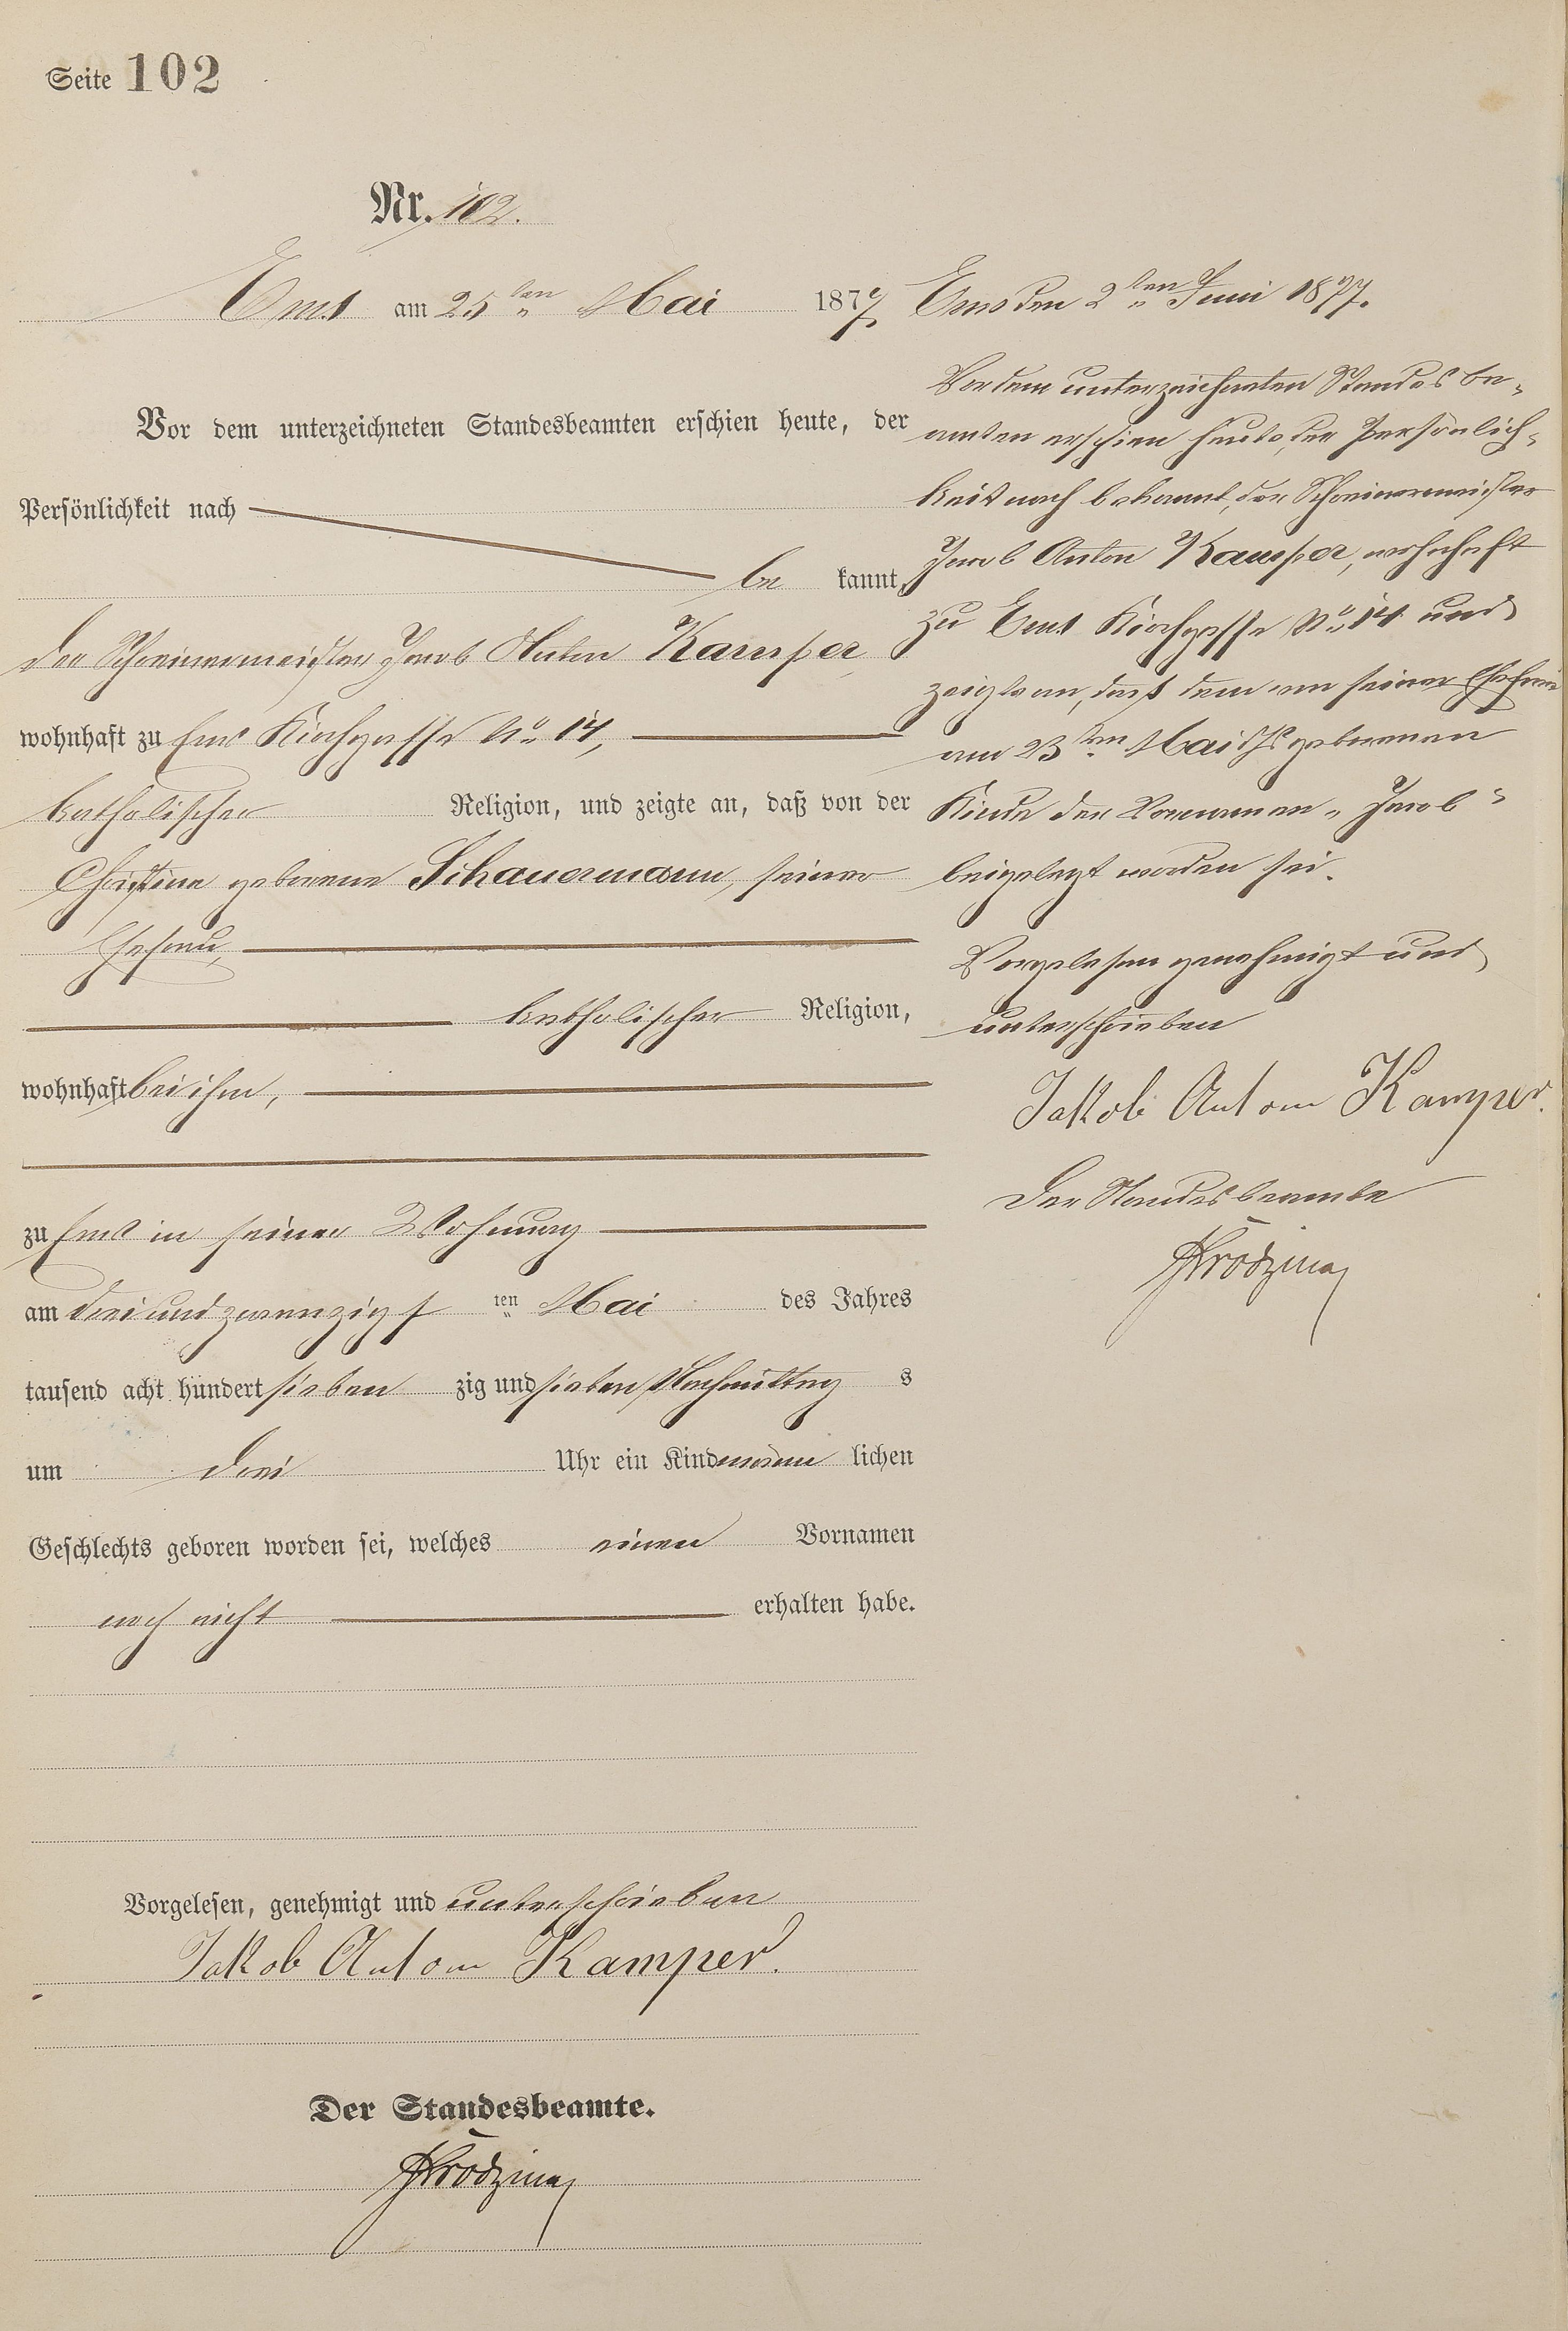 Seite 102
Nr. 102.
Ems am 25ten Mai 1877.
Vor dem unterzeichneten Standesbeamten erschien heute, der
Persönlichkeit nach
be kannt,
der Schreinermeister Jacob Anton Kamper
wohnhaft zu Ems Kirchgasse No 14,
katholischer Religion, und zeigte an, daß von der
Christina geborene Schauermann, seiner
Ehefrau,
katholischer Religion,
wohnhaft bei ihm,
zu Ems in seiner Wohnung
am drei und zwanzigs ten Mai des Jahres
tausend acht hundert sieben zig und sieben Nachmittag s
um drei Uhr ein Kind männ lichen
Geschlechts geboren worden sei, welches einen Vornamen
noch nicht erhalten habe.
Vorgelesen, genehmigt und unterschrieben
Jakob Anton Kamper.
Der Standesbeamte.
Ems den 2ten Juni 1877.
Vor dem unterzeichneten Standesbe-
amten erschien heute, der Persönlich-
keit nach bekannt, der Schreinermeister
Jacob Anton Kamper, wohnhaft
zu Ems Kirchgasse No 14 und
zeigte an, daß dem von seiner Ehefrau
am 23ten Mai geborenen
Kinde der Vornamen „Jacob“
beigelegt worden sei.
Vorgelesen genehmigt und
unterschrieben
Jakob Anton Kamper.
Der Standesbeamte